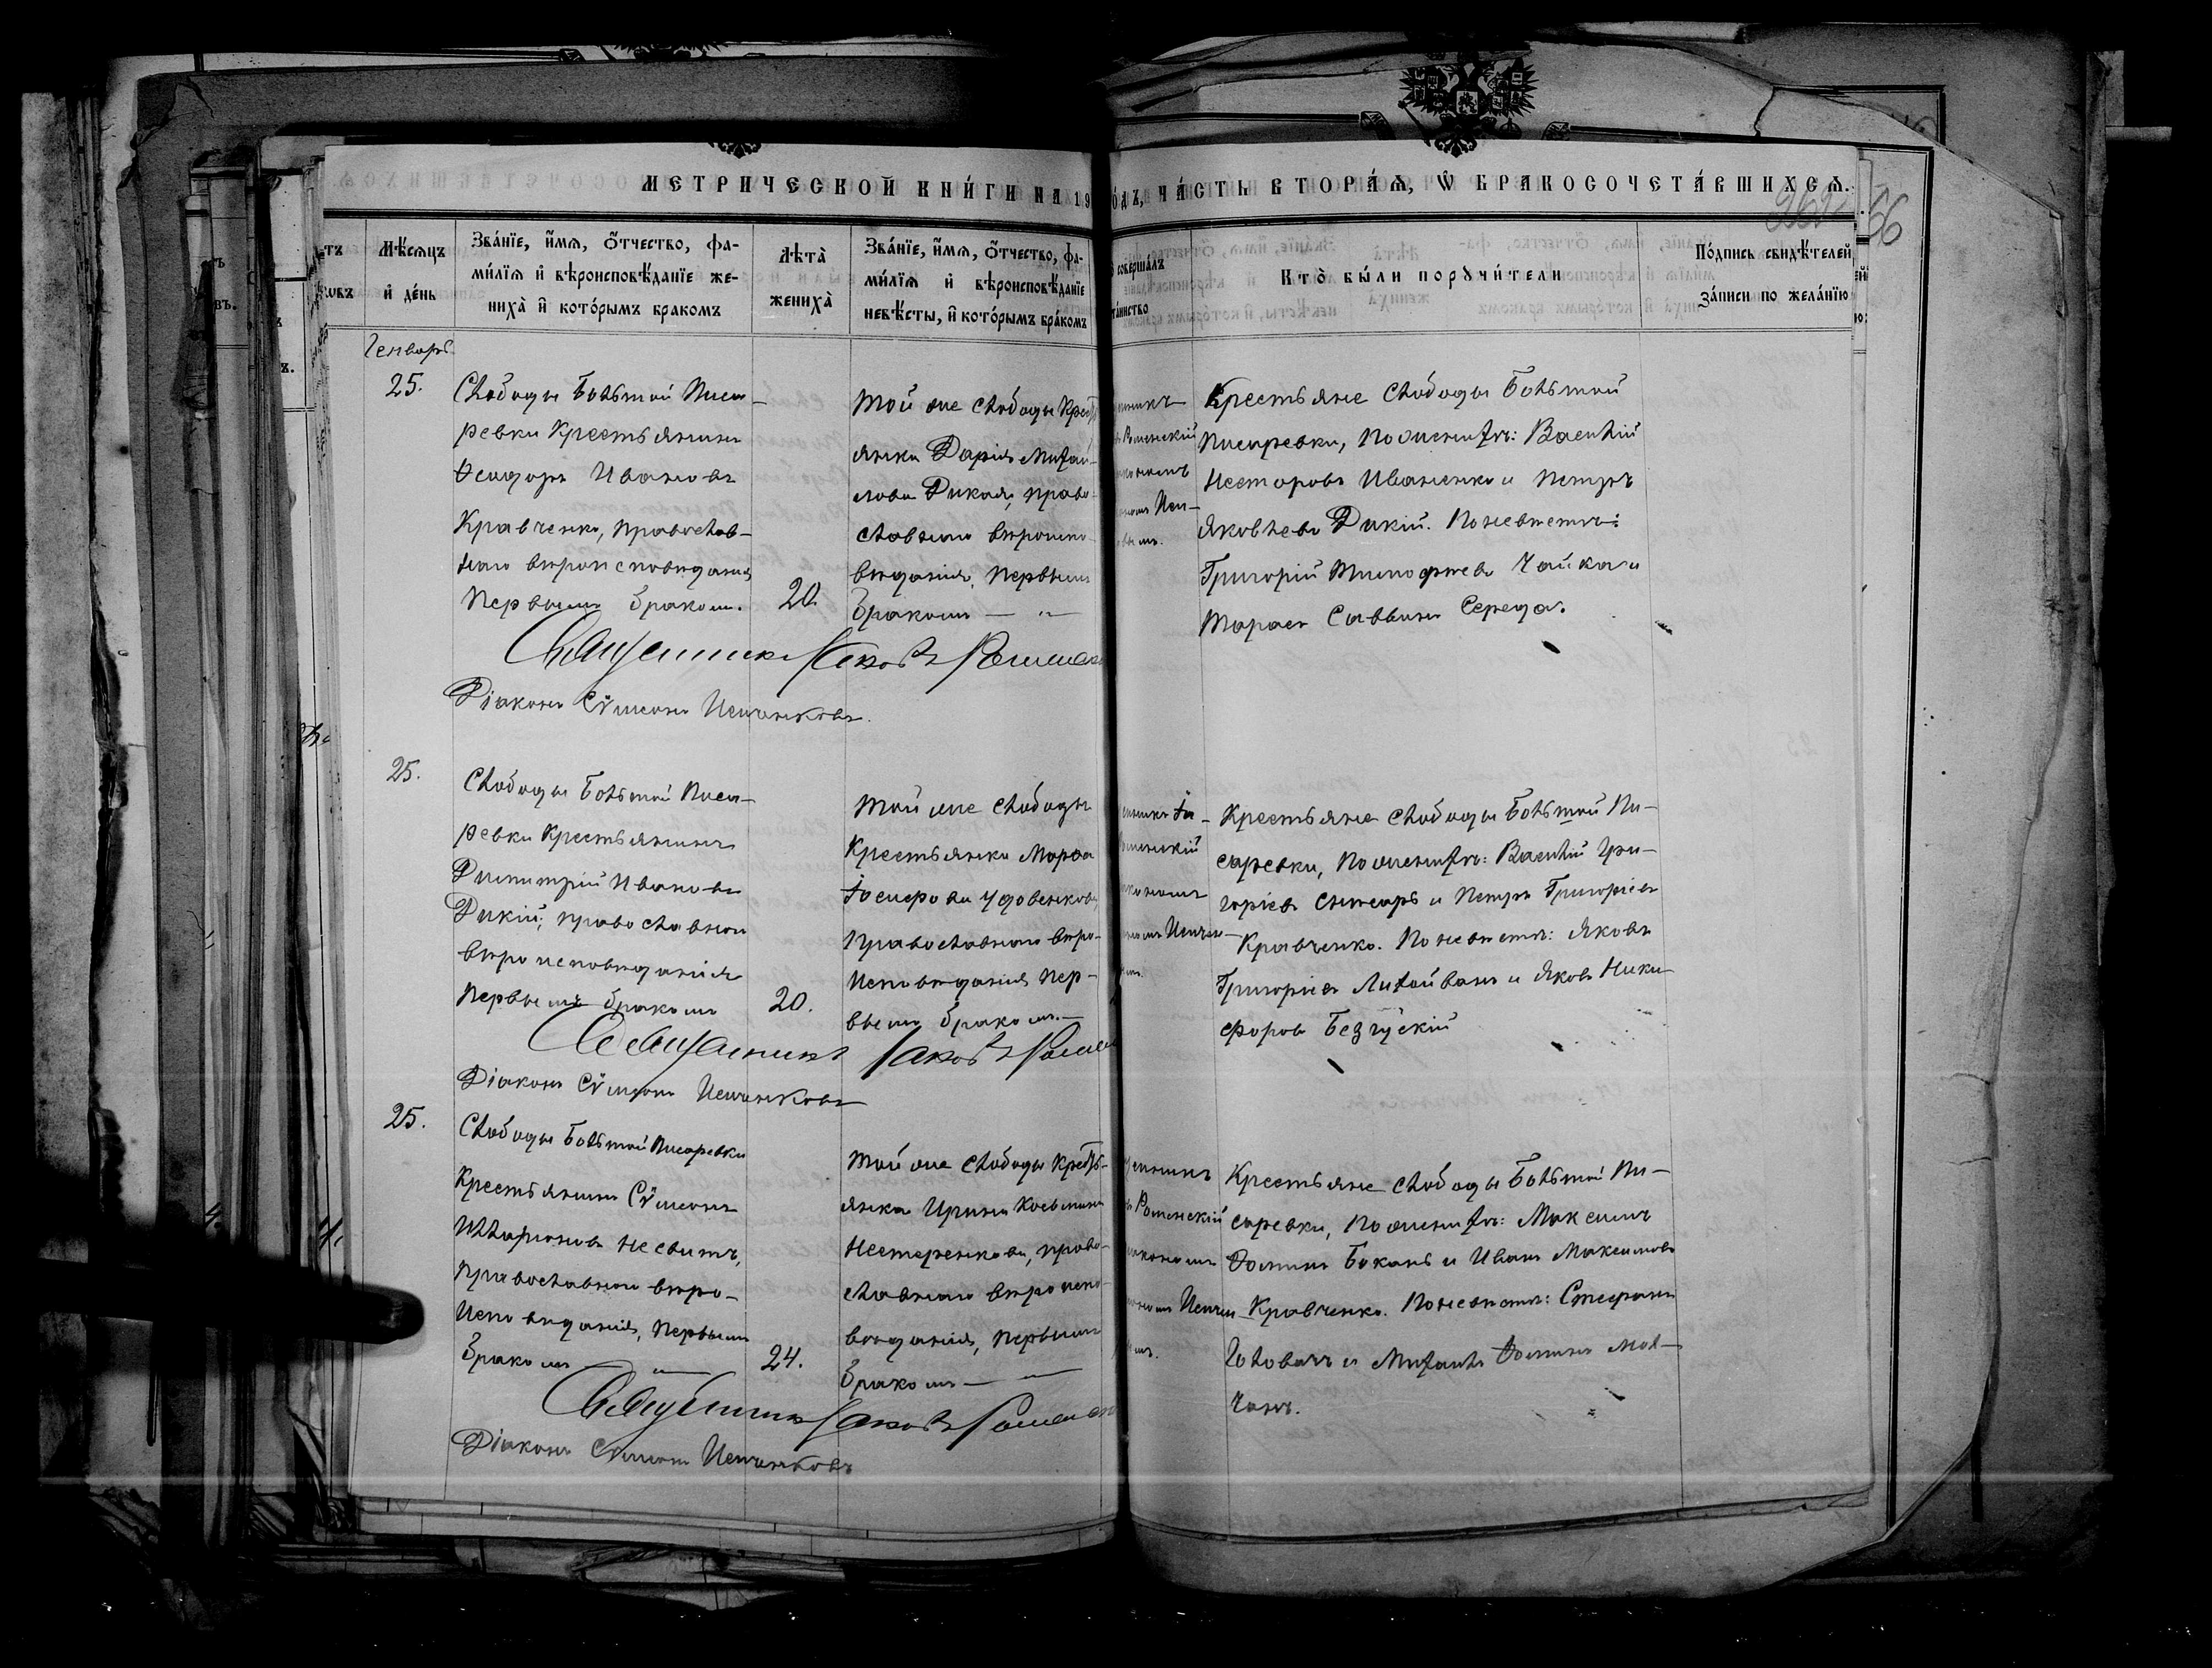 МЕТРИЧЕСКОЙ КНИ́ГИ НА 19
О́ДЪ, ЧА́СТЬ ВТОРА́Ѧ, Ѿ БРАКОСОЧЕТА́ВШИХСѦ.
56
Мѣ́сѧцъ и҆ де́нь
Зва́нїе, и҆́мѧ, ѻ҆́тчество, фа-
ми́лїѧ и҆ вѣроисповѣ́данїе же-
ниха̀ и҆ кото́рымъ бракомъ
Лѣта̀ жениха̀
Зва́нїе, и҆́мѧ, ѻ҆́тчество, фа-
ми́лїѧ и҆ вѣроисповѣ́данїе
невѣ́сты, и҆ кото́рымъ бра́комъ
соверша́лъ
та́инство
Кто̀ бы́ли порꙋчи́тели
По́дпись свидѣ́телей
за́писи по жела́нїю
Генварь
25.
Слободы Большой Писа-
ревки Крестьянинъ
Ѳеодоръ Ивановъ
Кравченко, православ-
наго вѣроисповѣданія
первымъ бракомъ.
20.
Той же слободы Крестъ
янка Дарія Михаи-
лова Дикая, право-
славнаго вѣроиспо-
вѣданія, первымъ
бракомъ — "—
Роменскій
Крестьяне слободы Большой
Писаревки, по женихѣ: Василій
Несторовъ Иваненко и Петръ
Яковлевъ Дикій. По невѣстѣ:
Григорій Тимофѣевъ Чайка и
Тарасъ Саввинъ Середа.
Священникъ Іаковъ Роменск
Діаконъ Сѵмеонъ Исиченковъ.
25.
Слободы Большой Писа-
ревки Крестьянинъ
Димитрій Ивановъ
Дикій, православнаго
вѣроисповѣданія
первымъ бракомъ
20.
Той же слободы
Крестьянка Марѳа
Іосифова Удовенкова,
православнаго вѣро-
исповѣданія пер-
вымъ бракомъ.—
Крестьяне слободы Большой Пи-
саревки, по женихѣ: Василій Гри-
горіевъ Снѣсарь и Петръ Григоріевъ
Кравченко. По невѣстѣ: Яковъ
Григоріевъ Лихойванъ и Яковъ Ники-
форовъ Безгускій
Священникъ Іаковъ Ромен
Діаконъ Сѵмеонъ Исиченковъ
25.
Слободы Большой Писаревки
Крестьянинъ Сѵмеонъ
Илларіоновъ Несвитъ,
православнаго вѣро-
исповѣданія, первымъ
бракомъ — "—
24.
Той же слободы Крестъ-
янка Ирина Косьмина
Нестеренкова, право-
славнаго вѣроиспо-
вѣданія, первымъ
бракомъ — "—
Роменскій
Крестьяне слободы Большой Пи-
саревки, по женихѣ: Максимъ
Ѳоминъ Бокань и Иванъ Максимовъ
Кравченко. По невѣстѣ: Стефанъ
Головачъ и Михаилъ Ѳоминъ Мол-
чанъ.
Священникъ Іаковъ Роменск
Діаконъ Сѵмеонъ Исиченковъ